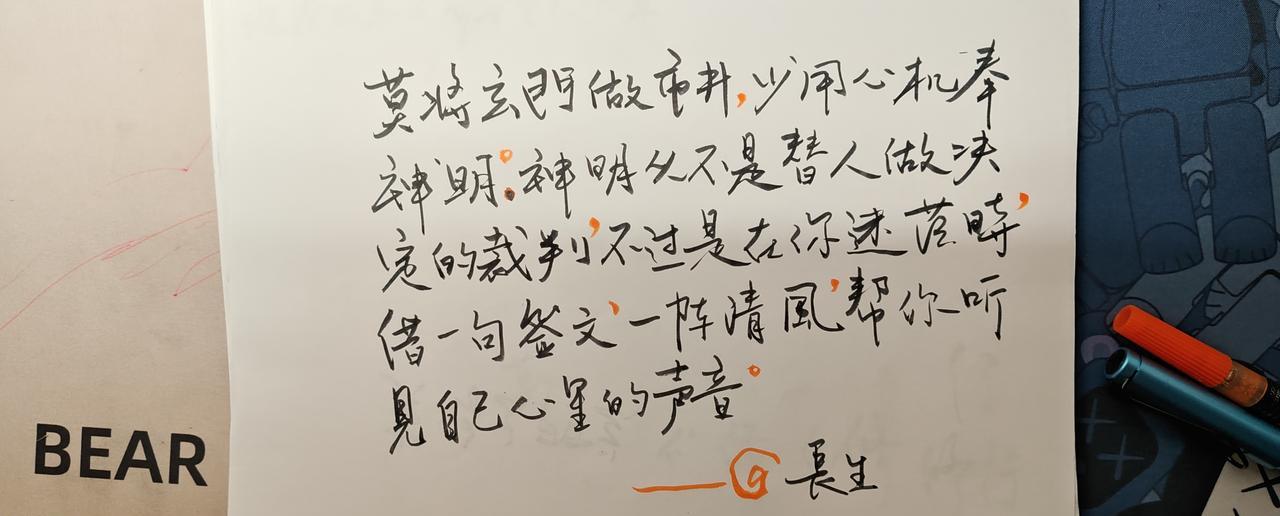 莫将玄門做市井，少用心机奉
神明。神明从不是替人做决
定的裁判，不过是在你迷茫時，
借一句签文，一阵清風，帮你听
見自己心里的声音。
——@長生
BEAR